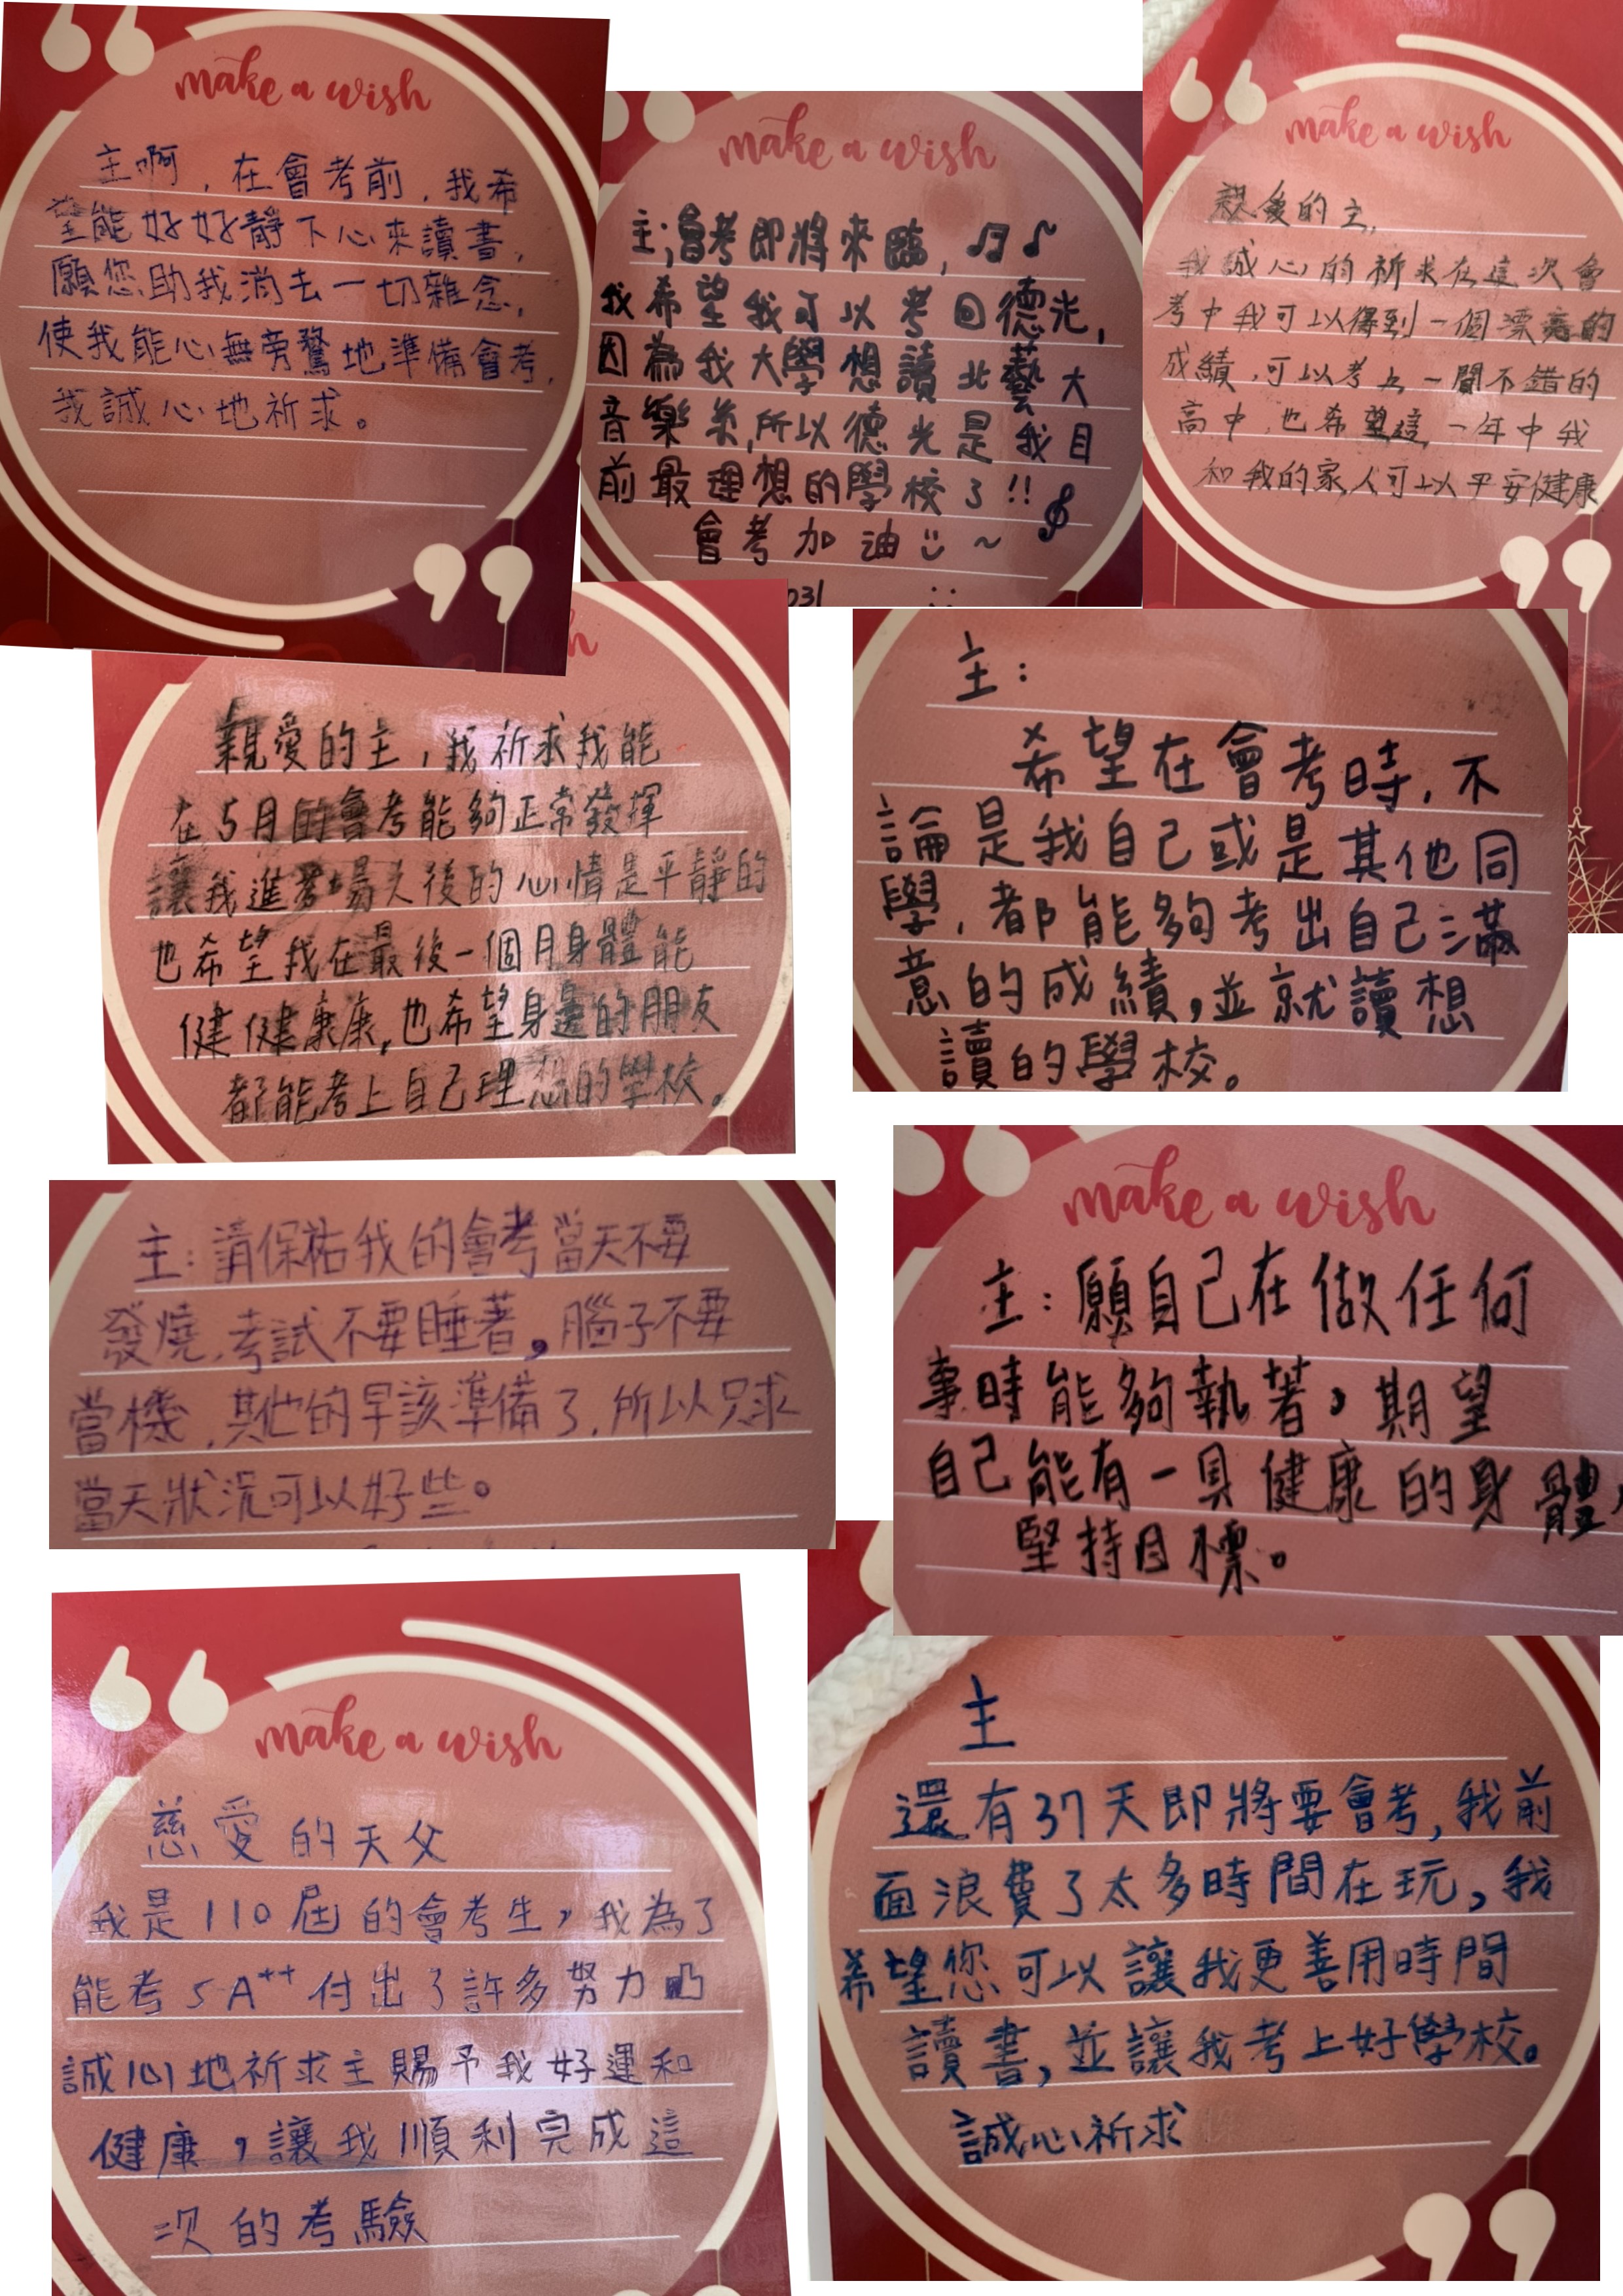 make a wish
主啊，在會考前，我希
望能好好靜下心來讀書，
願您助我消去一切雜念，
使我能心無旁騖地準備會考，
我誠心地祈求。
make a wish
主;會考即將來臨，
我希望我可以考回德光，
因為我大學想讀北藝大
音樂系,所以德光是我目
前最理想的學校了!!
會考加油 ~
031
make a wish
親愛的主，
我誠心的祈求在這次會
考中我可以得到一個漂亮的
成績，可以考上一間不錯的
高中，也希望這一年中我
和我的家人可以平安健康
h
親愛的主，我祈求我能
在5月的會考能夠正常發揮
讓我進考場之後的心情是平靜的
也希望我在最後一個月身體能
健健康康，也希望身邊的朋友
都能考上自己理想的學校。
主：
希望在會考時，不
論是我自己或是其他同
學，都能夠考出自己滿
意的成績，並就讀想
讀的學校。
主：請保祐我的會考當天不要
發燒，考試不要睡著，腦子不要
當機，其他的早該準備了，所以只求
當天狀況可以好些。
make a wish
主：願自己在做任何
事時能夠執著，期望
自己能有一具健康的身體，
堅持目標。
make a wish
慈愛的天父
我是110屆的會考生，我為了
能考5A⁺⁺付出了許多努力
誠心地祈求主賜予我好運和
健康，讓我順利完成這
次的考驗
主
還有37天即將要會考，我前
面浪費了太多時間在玩，我
希望您可以讓我更善用時間
讀書，並讓我考上好學校。
誠心祈求